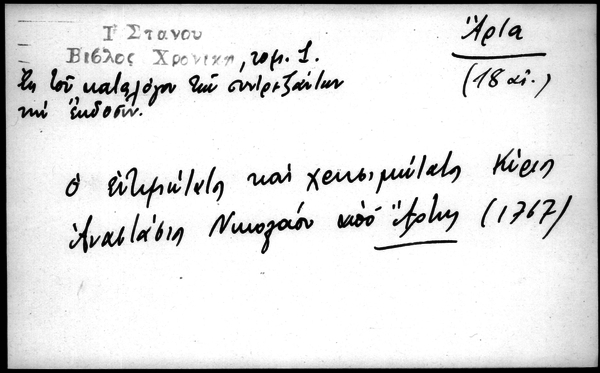 Ι Στανου
Βιβλος Χρονικη, τομ. 1.
Ἄρτα
(18 αἰ.)
Ἐκ τοῦ καταλόγου τῶν συνδραμόντων
τὴν ἔκδοσιν.
Ὁ εὐτιμώτατος καὶ χρησιμώτατος Κύριος
Ἀναστάσιος Νικολάου ἀπό Ἄρτης (1767)